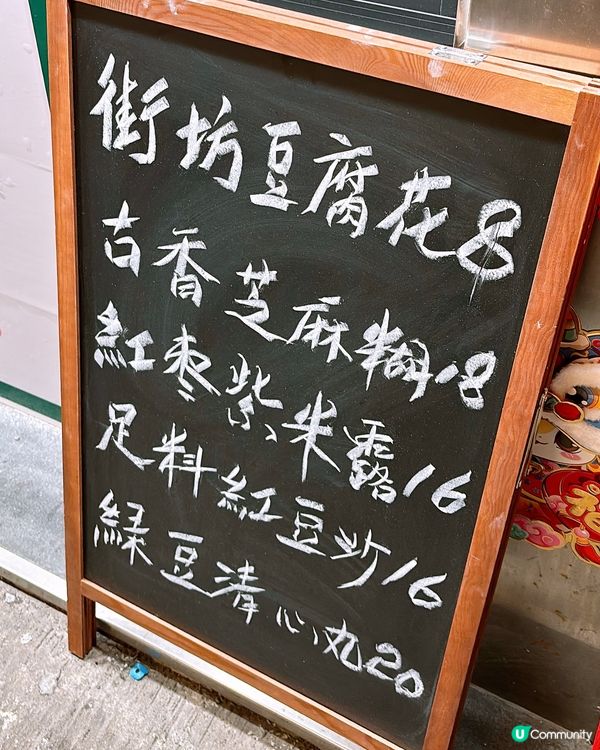 街坊豆腐花8
古香芝麻糊18
紅枣紫米露16
足料紅豆沙16
綠豆清心丸20
U Community